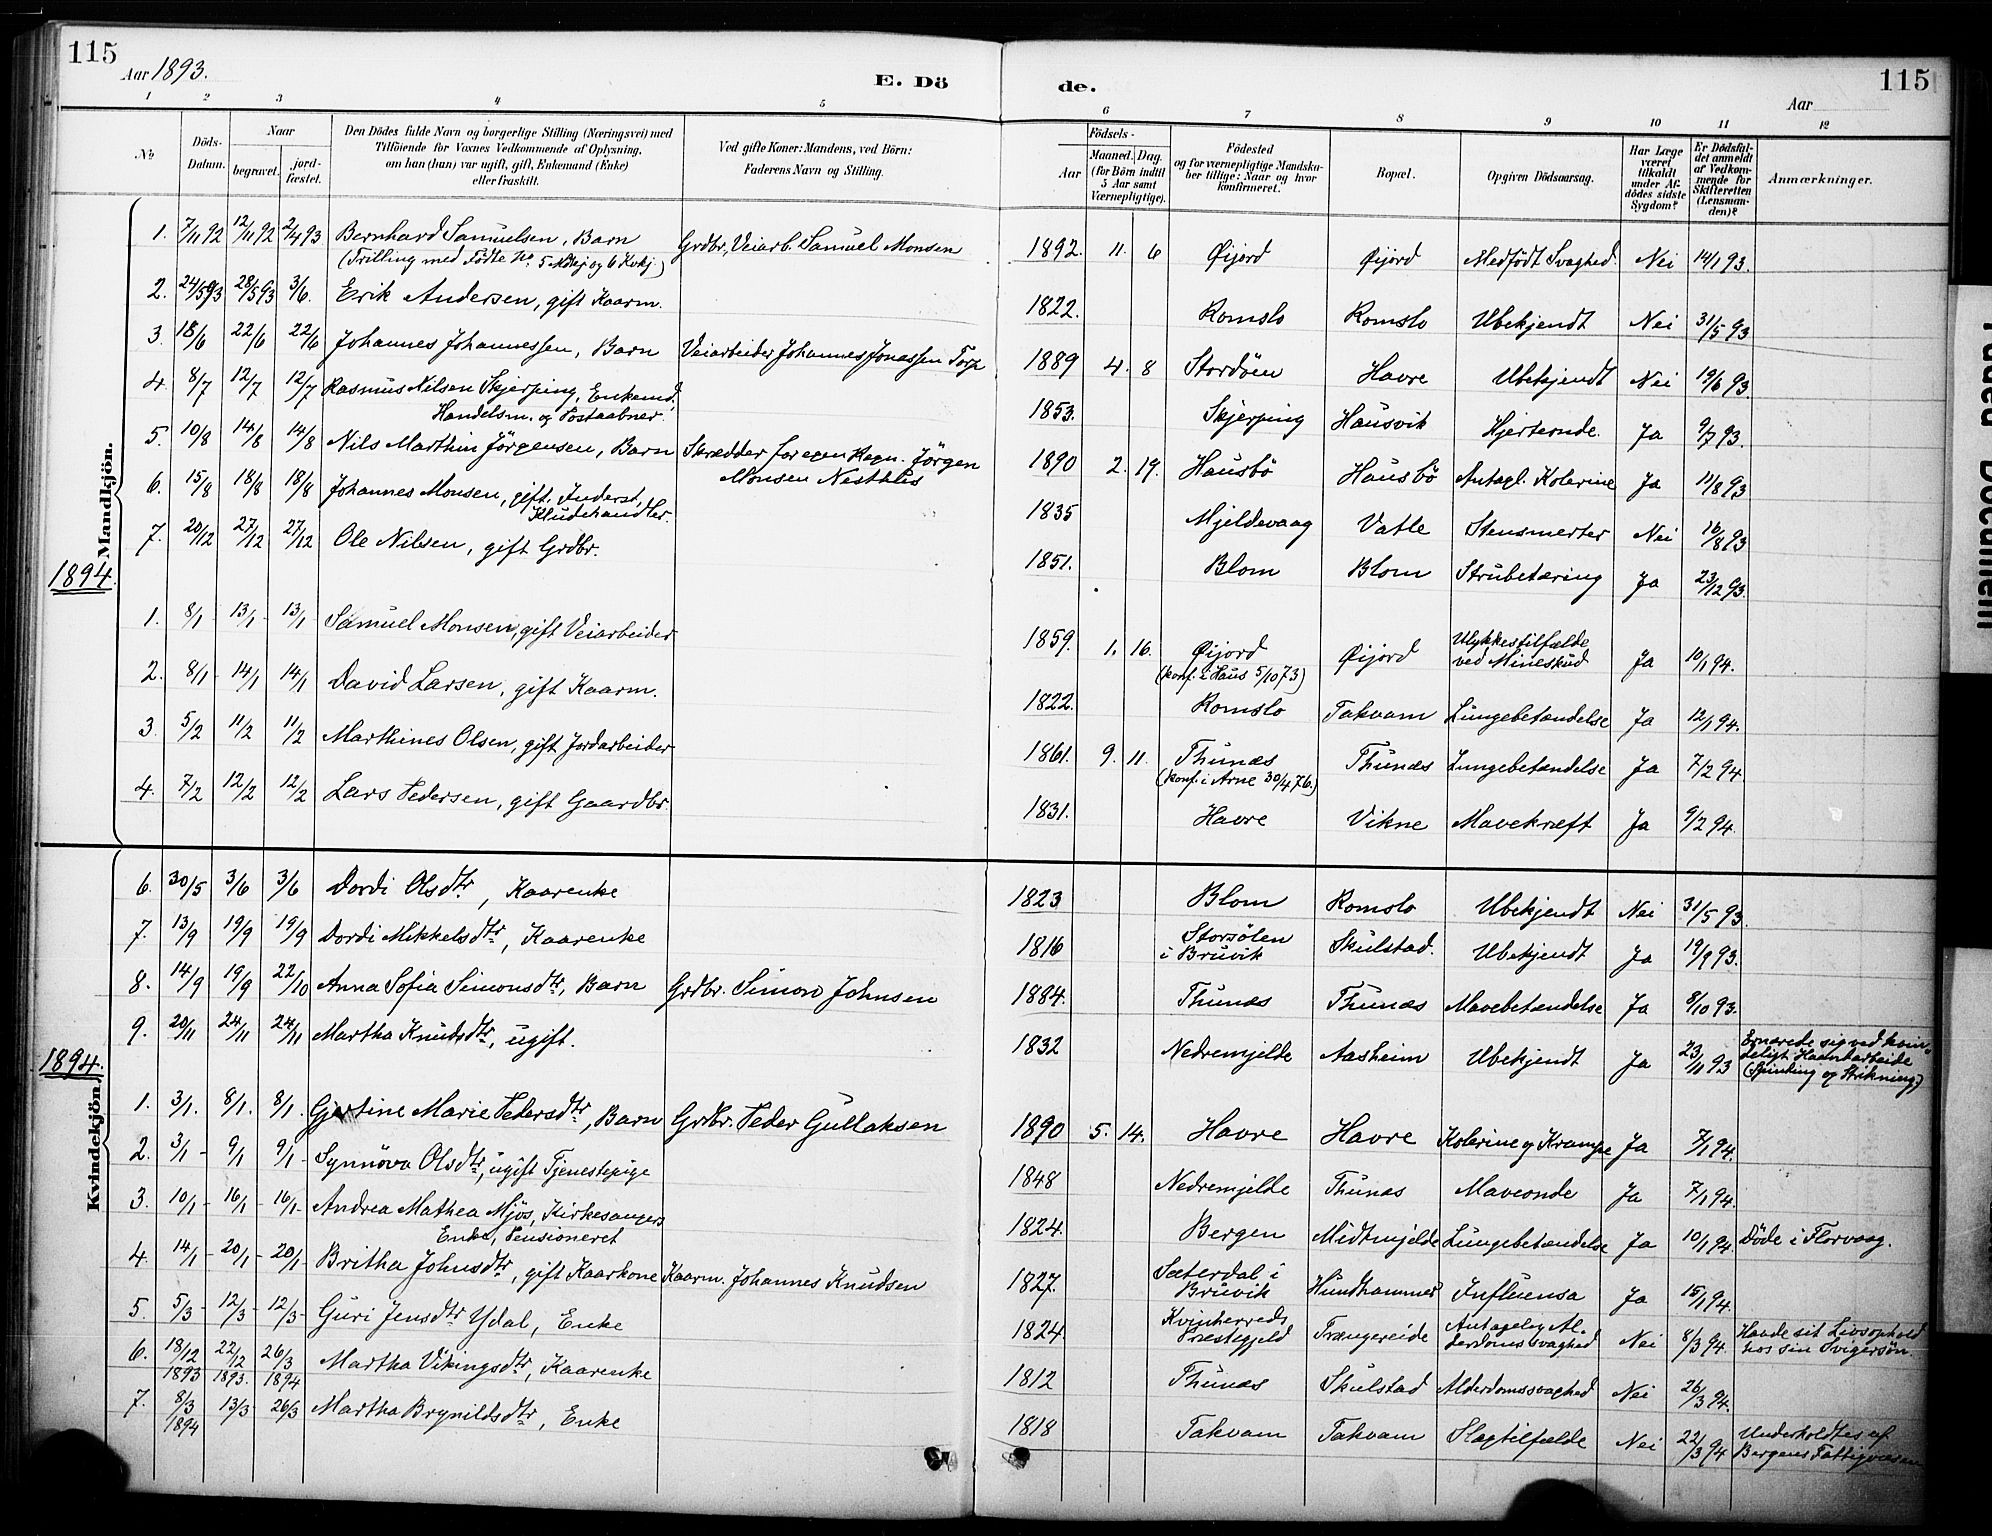 115
Aar 1893.
E. Dö
de.
Aar
115
1 2 3 4 5 6 7 8 9 10 11 12
№
Döds-Datum.
Naar
begravet.
jord-fæstet.
Den Dödes fulde Navn og borgerlige Stilling (Næringsvei) med
Tilföiende for Voxnes Vedkommende af Oplysning,
om han (hun) var ugift, gift, Enkemand (Enke)
eller fraskilt.
Ved gifte Koner: Mandens, ved Börn:
Faderens Navn og Stilling.
Födsels-
Aar
Maaned. Dag.
(for Börn indtil
5 Aar samt
Værnepligtige).
Födested
og for værnepligtige Mandska-
ber tillige: Naar og hvor
konfirmeret.
Bopæl.
Opgiven Dödsaarsag.
Har Læge
været
tilkaldt
under Af-
dödes sidste
Sygdom?
Er Dödsfal-
det anmeldt
af Vedkom-
mende for
Skifteretten
(Lensman-
den)?
Anmærkninger.
Mandkjön.
1. 7/11 92 12/11 92 2/4 93 Bernhard Samuelsen, Barn Grdbr, Veiarb. Samuel Monsen 1892. 11. 6 Øijord Øijord Medfödt Svaghed. Nei 14/1 93.
(Trilling med Födte No. 5 Mdkj. og 6 Kvkj.)
2. 24/5 93 28/5 93 3/6. Erik Andersen, gift Kaarm. 1822. Romslo Romslo Ubekjendt Nei 31/5 93
3. 18/6 22/6 22/6 Johannes Johannessen, Barn Veiarbeider Johannes Jonassen Torp 1889 4. 8 Stordöen Havre Ubekjendt Nei 19/6 93.
4. 8/7 12/7 12/7 Rasmus Nilsen Skjerping, Enkemd, 1853. Skjerping Hausvik Hjerteonde. Ja 9/7 93.
Handelsm. og Postaabner.
5. 10/8 14/8 14/8 Nils Marthin Jörgensen, Barn Skrædder for egen Regn. Jörgen 1890 2. 19. Hausbö Hausbö Antagl. Kolerine Ja 11/8 93
Monsen Nesthus
6. 15/8 18/8 18/8 Johannes Monsen, gift. Inderst, 1835 Mjeldevaag Vatle Stensmerter Nei 16/8 93
Kludehandler.
7. 20/12 27/12 27/12 Ole Nilsen, gift Grdbr. 1851. Blom Blom Strubetæring Ja 23/12 93.
1894.
1. 8/1 - 13/1 - 13/1 Samuel Monsen, gift Veiarbeider 1859. 1. 16. Øijord Øijord Ulykkestilfælde Ja 10/1 94.
(konf. i Haus 5/10 73) ved Mineskud
2. 8/1 - 14/1 14/1 David Larsen, gift Kaarm. 1822. Romslo Takvam Lungebetændelse Ja 12/1 94.
3. 5/2 11/2 11/2 Marthines Olsen, gift Jordarbeider 1861. 9. 11. Thunæs Thunæs Lungebetændelse Ja 7/2 94
(konf. i Arne 30/4 76.)
4. 7/2 12/2 12/2 Lars Pedersen, gift Gaardbr. 1831. Havre Vikne Mavekræft Ja 9/2 94.
Kvindekjön.
6. 30/5 3/6 3/6 Dordi Olsdtr, Kaarenke 1823 Blom Romslo Ubekjendt Nei 31/5 93.
7. 13/9 19/9 19/9 Dordi Mikkelsdtr, Kaarenke 1816 Storsölen Skulstad. Ubekjendt Ja 19/9 93.
i Bruvik
8. 14/9 19/9 22/10 Anna Sofia Simonsdtr, Barn Grdbr. Simon Johnsen 1884. Thunæs Thunæs Mavebetændelse Ja 8/10 93.
9. 20/11 24/11 24/11 Martha Knudsdtr, ugift. 1832 Nedremjelde Aasheim Ubekjendt Ja 23/11 93 Ernærede sig ved kvin-
deligt Haantarbeide
(Spinding og Strikning)
1894.
1. 3/1. 8/1. 8/1. Gjertine Marie Pedersdtr, Barn Grdbr. Peder Gullaksen 1890 5. 14. Havre Havre Kolerine og Krampe Ja 7/1 94.
2. 3/1 - 9/1 9/1 - Synnöva Olsdtr, ugift Tjenestepige 1848 Nedremjelde Thunæs Maveonde Ja 7/1 94.
3. 10/1 - 16/1 - 16/1 - Andrea Mathea Mjös, Kirkesangers 1824. Bergen Midtmjelde Lungebetændelse Ja 10/1 94. Döde i Florvaag.
Enke, Pensioneret
4. 14/1 - 20/1 - 20/1 - Britha Johnsdtr, gift Kaarkone Kaarm. Johannes Knudsen 1827. Sæterdal i Hundhammer Influensa Ja 15/1 94.
Bruvik
5. 5/3 - 12/3 - 12/3 - Guri Jensdtr Ydal, Enke 1824. Kvinherreds Trængereide Antagelig Al- Nei 8/3 94. Havde sit Livsophold
Præstegjeld derdomssvaghed hos sin Svigersön
6. 18/12 1893 22/12 1893. 26/3 1894 Martha Vikingsdtr, Kaarenke 1812 Thunæs Skulstad Alderdomssvaghed Nei 26/3 94.
7. 8/3 1894 13/3 26/3 Martha Brynildsdtr, Enke 1818 Takvam Takvam Slagtilfælde Nei 22/3 94 Underholdtes af
Bergens Fattigvæsen